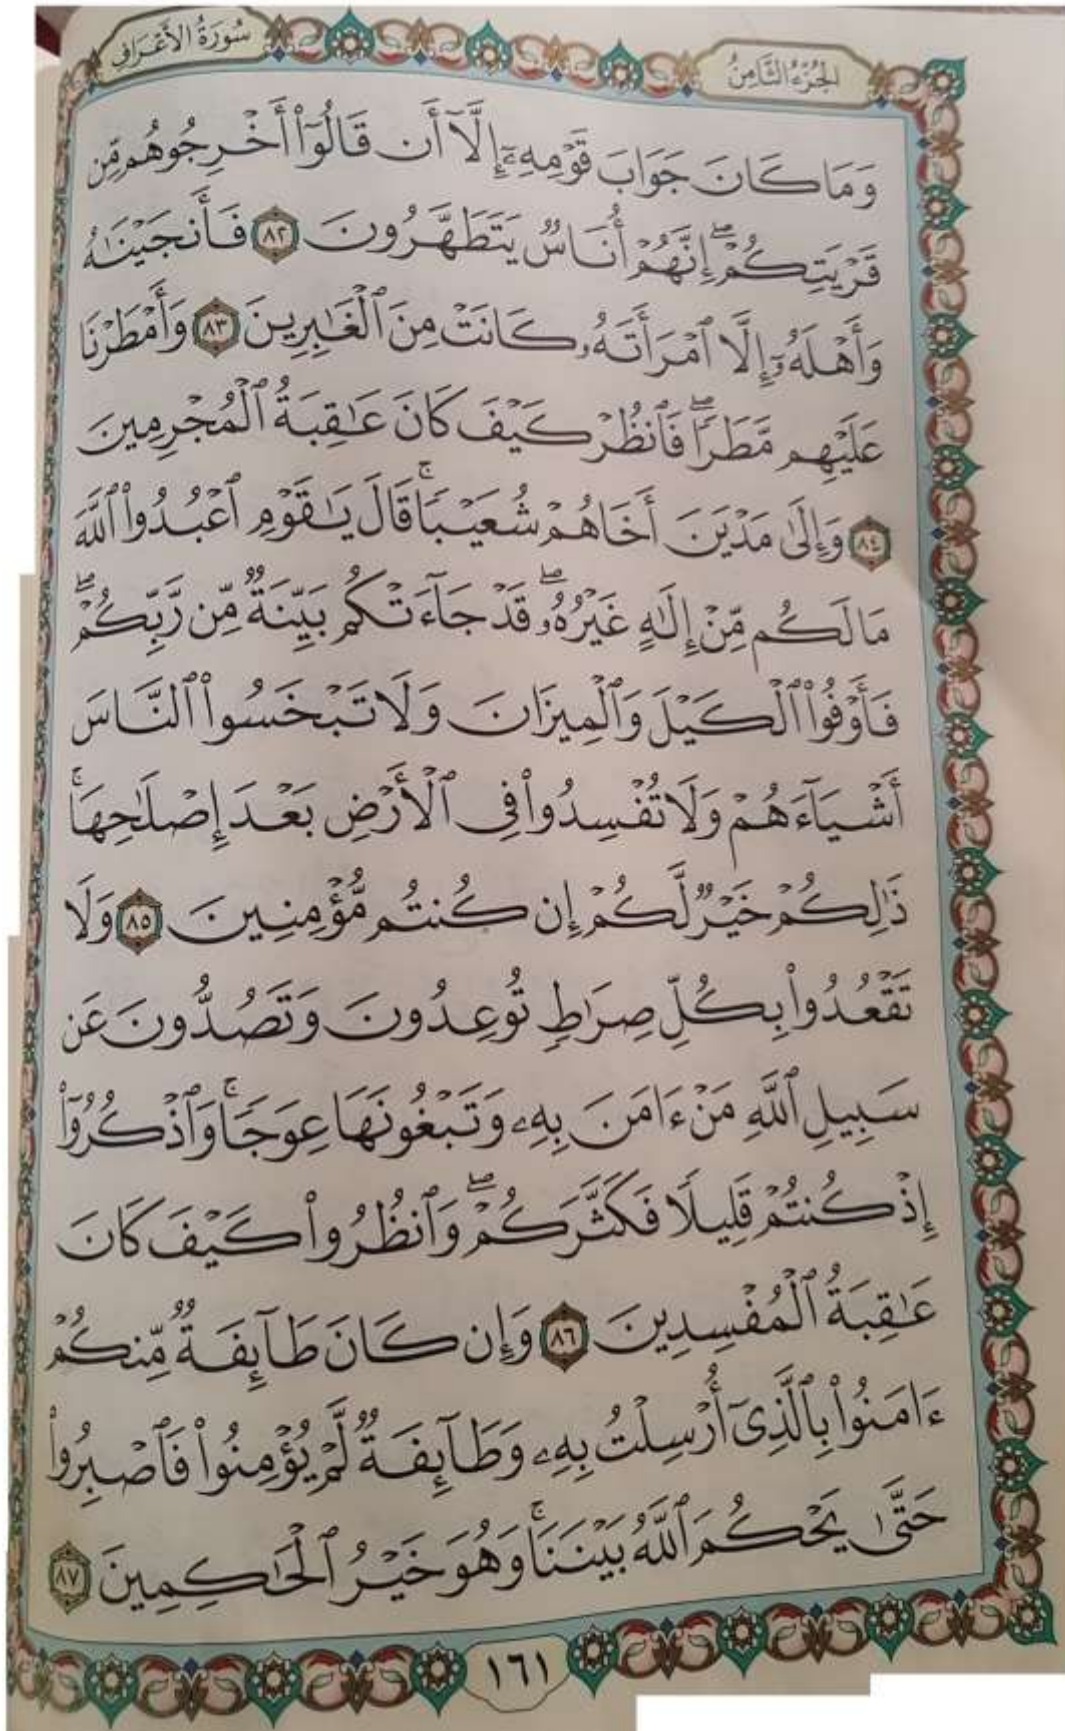 الجُزْءُ الثَّامِنُ
سُورَةُ الأَعْرَافِ
وَمَا كَانَ جَوَابَ قَوْمِهِۦٓ إِلَّآ أَن قَالُوٓاْ أَخْرِجُوهُم مِّن
قَرْيَتِكُمْۖ إِنَّهُمْ أُنَاسٌ يَتَطَهَّرُونَ ٨٢ فَأَنجَيْنَٰهُ
وَأَهْلَهُۥٓ إِلَّا ٱمْرَأَتَهُۥ كَانَتْ مِنَ ٱلْغَٰبِرِينَ ٨٣ وَأَمْطَرْنَا
عَلَيْهِم مَّطَرًاۖ فَٱنظُرْ كَيْفَ كَانَ عَٰقِبَةُ ٱلْمُجْرِمِينَ
٨٤ وَإِلَىٰ مَدْيَنَ أَخَاهُمْ شُعَيْبًاۚ قَالَ يَٰقَوْمِ ٱعْبُدُواْ ٱللَّهَ
مَا لَكُم مِّنْ إِلَٰهٍ غَيْرُهُۥۖ قَدْ جَآءَتْكُم بَيِّنَةٌ مِّن رَّبِّكُمْۖ
فَأَوْفُواْ ٱلْكَيْلَ وَٱلْمِيزَانَ وَلَا تَبْخَسُواْ ٱلنَّاسَ
أَشْيَآءَهُمْ وَلَا تُفْسِدُواْ فِي ٱلْأَرْضِ بَعْدَ إِصْلَٰحِهَاۚ
ذَٰلِكُمْ خَيْرٌ لَّكُمْ إِن كُنتُم مُّؤْمِنِينَ ٨٥ وَلَا
تَقْعُدُواْ بِكُلِّ صِرَٰطٍ تُوعِدُونَ وَتَصُدُّونَ عَن
سَبِيلِ ٱللَّهِ مَنْ ءَامَنَ بِهِۦ وَتَبْغُونَهَا عِوَجًاۚ وَٱذْكُرُوٓاْ
إِذْ كُنتُمْ قَلِيلًا فَكَثَّرَكُمْۖ وَٱنظُرُواْ كَيْفَ كَانَ
عَٰقِبَةُ ٱلْمُفْسِدِينَ ٨٦ وَإِن كَانَ طَآئِفَةٌ مِّنكُمْ
ءَامَنُواْ بِٱلَّذِيٓ أُرْسِلْتُ بِهِۦ وَطَآئِفَةٌ لَّمْ يُؤْمِنُواْ فَٱصْبِرُواْ
حَتَّىٰ يَحْكُمَ ٱللَّهُ بَيْنَنَاۚ وَهُوَ خَيْرُ ٱلْحَٰكِمِينَ ٨٧
١٦١